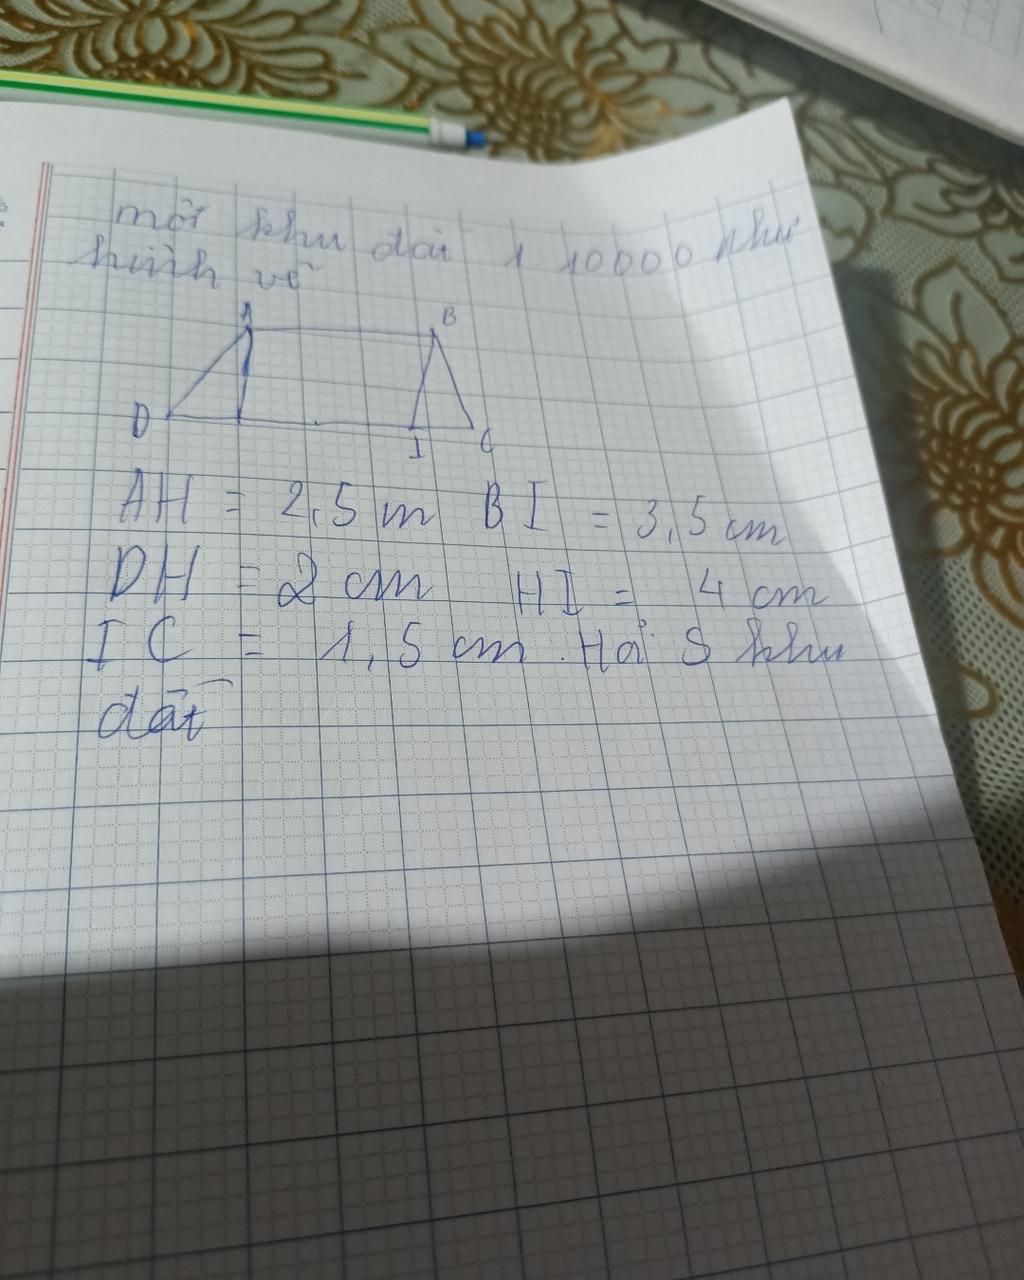 một khu đất 1 10000 như
hình vẽ
A B
D I C
AH = 2,5 m BI = 3,5 cm
DH = 2 cm HI = 4 cm
IC = 1,5 cm. Hỏi S khu
đất